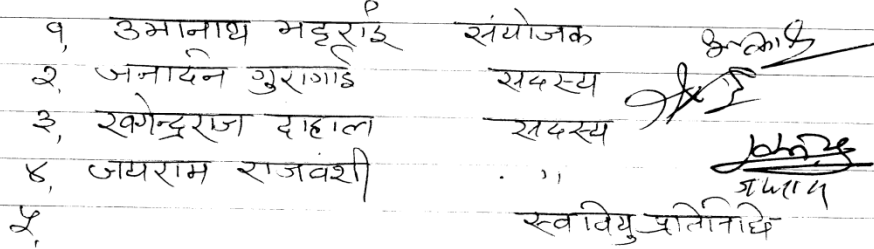 १, उमानाथ भट्टराई संयोजक
२, जनार्दन गुरागाई सदस्य
३, खगेन्द्रराज दाहाल सदस्य
४, जयराम राजवंशी "
जयराम
५, स्ववियु प्रतिनिधि